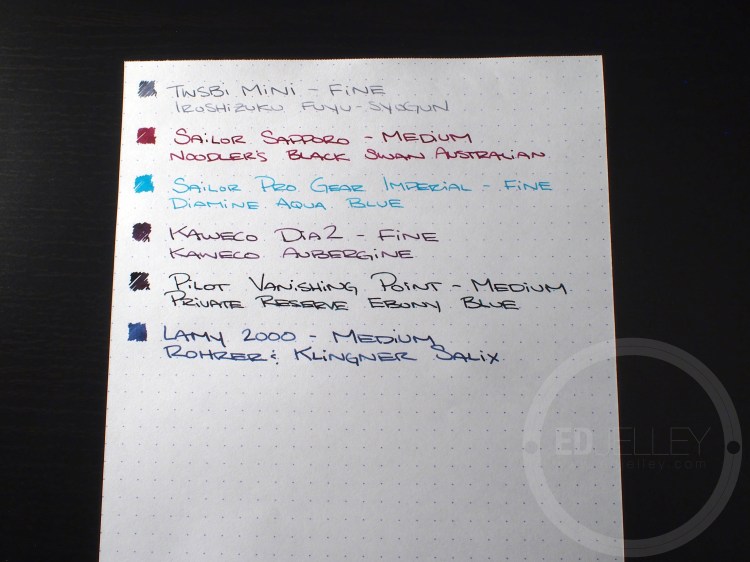 TWSBI MINI - FINE
IROSHIZUKU FUYU-SYOGUN
SAILOR SAPPORO - MEDIUM
NOODLER'S BLACK SWAN AUSTRALIAN
SAILOR PRO GEAR IMPERIAL - FINE
DIAMINE AQUA BLUE
KAWECO DIA2 - FINE
KAWECO AUBERGINE
PILOT VANISHING POINT - MEDIUM
PRIVATE RESERVE EBONY BLUE
LAMY 2000 - MEDIUM
ROHRER & KLINGNER SALIX
ED JELLEY